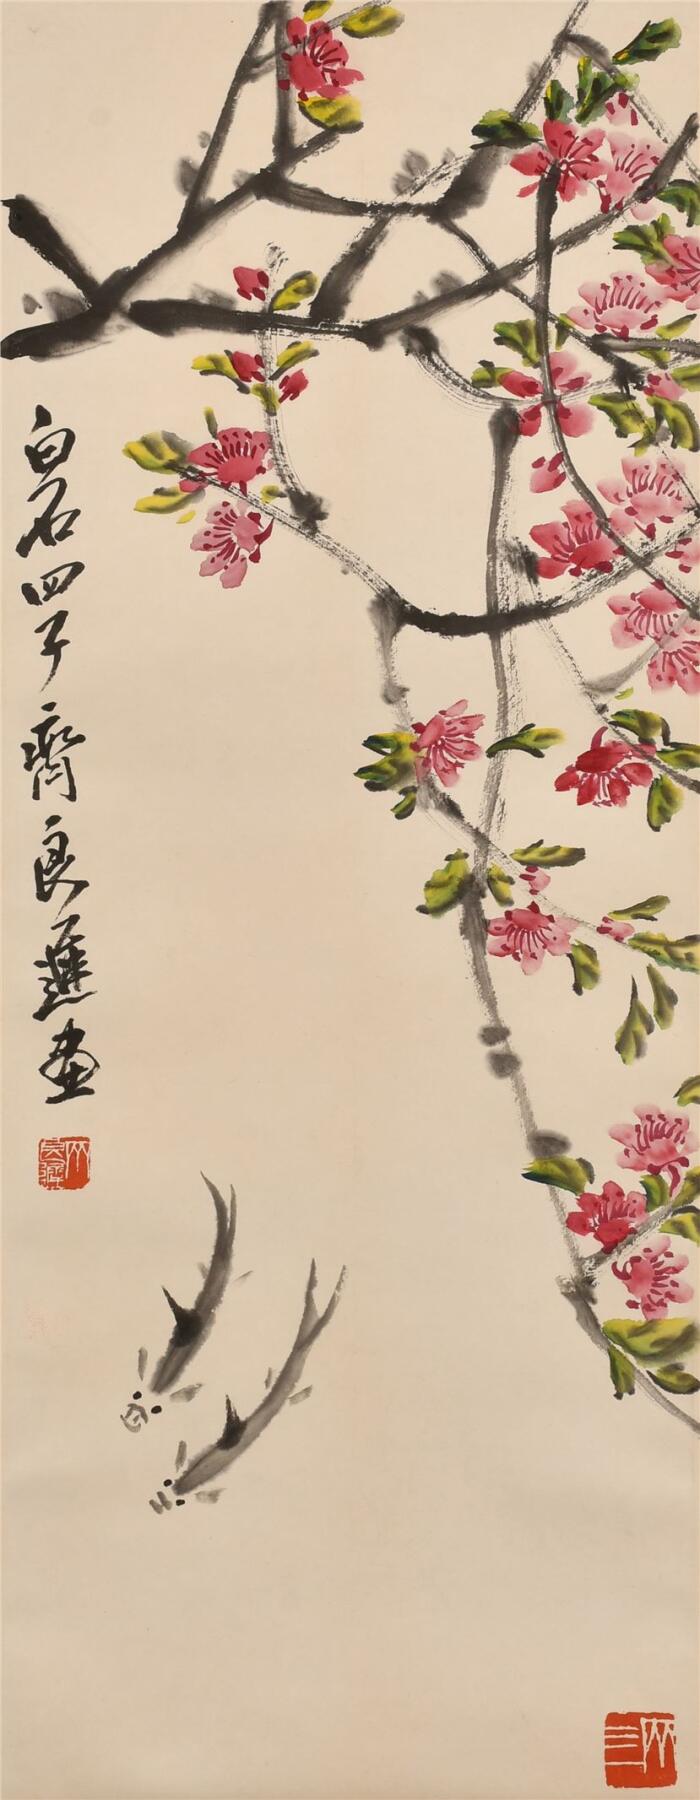 白石四子齊良遲畫
齊三